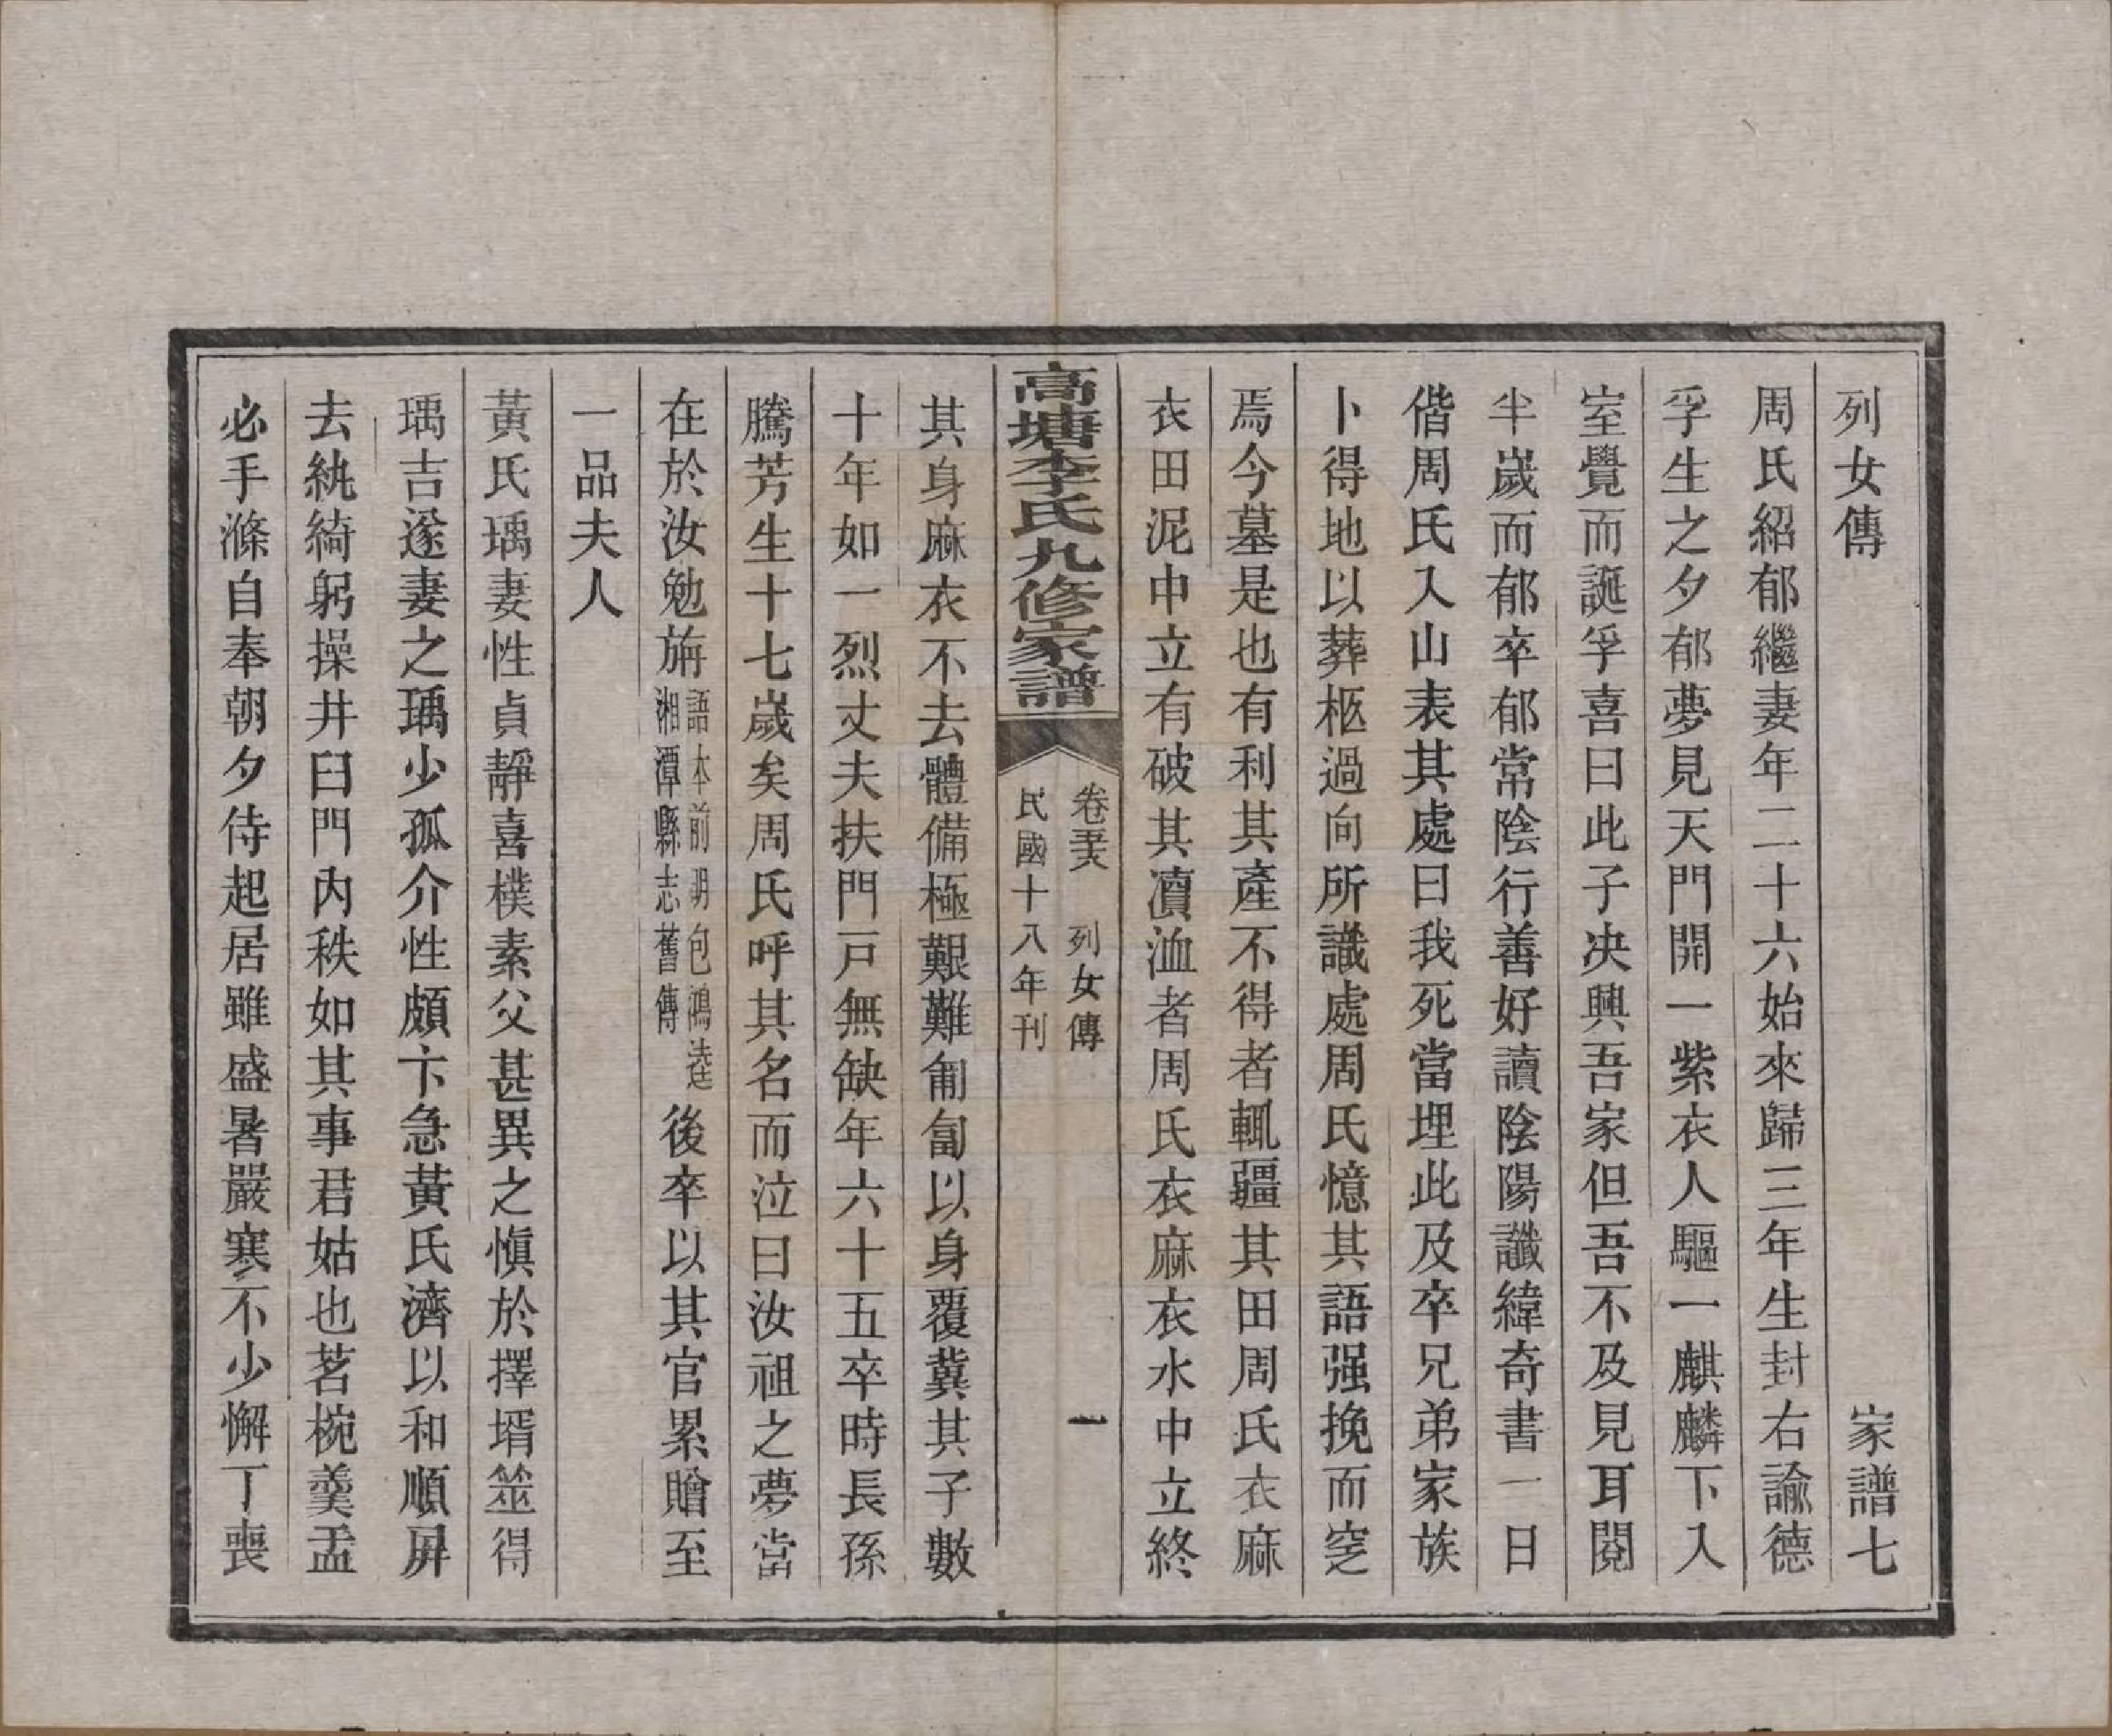 列女傳　家譜七
周氏紹郁繼妻年二十六始來歸三年生封右諭德
孚生之夕郁夢見天門開一紫衣人驅一麒麟下入
室覺而誕孚喜曰此子决興吾家但吾不及見耳閱
半嵗而郁卒郁常陰行善好讀陰陽讖緯奇書一日
偕周氏入山表其處曰我死當埋此及卒兄弟家族
卜得地以葬柩過向所識處周氏憶其語强挽而窆
焉今墓是也有利其產不得者輒疆其田周氏衣麻
衣田泥中立有破其凟洫者周氏衣麻衣水中立終
高塘李氏九修家譜
卷五　列女傳　一
民國十八年刊
其身麻衣不去體備極艱難匍匐以身覆冀其子數
十年如一烈丈夫扶門戸無缺年六十五卒時長孫
騰芳生十七嵗矣周氏呼其名而泣曰汝祖之夢當
在於汝勉旃語本前明包鴻逵湘潭縣志舊傳後卒以其官累贈至
一品夫人
黃氏瑀妻性貞靜喜樸素父甚異之愼於擇壻筮得
瑀吉遂妻之瑀少孤介性頗卞急黃氏濟以和順屏
去紈綺躬操井臼門內秩如其事君姑也茗椀羹盂
必手滌自奉朝夕侍起居雖盛暑嚴寒不少懈丁喪